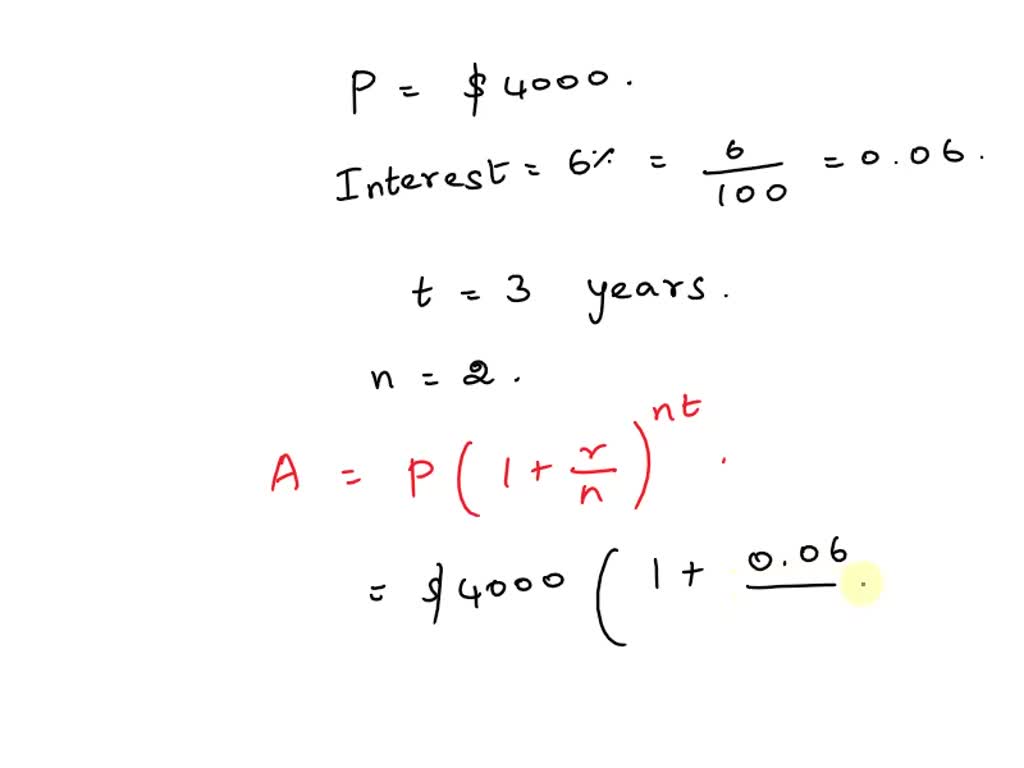 P = $4000.
Interest = 6% = 6/100 = 0.06.
t = 3 years.
n = 2.
A = P(1 + r/n)^nt.
= $4000 (1 + 0.06